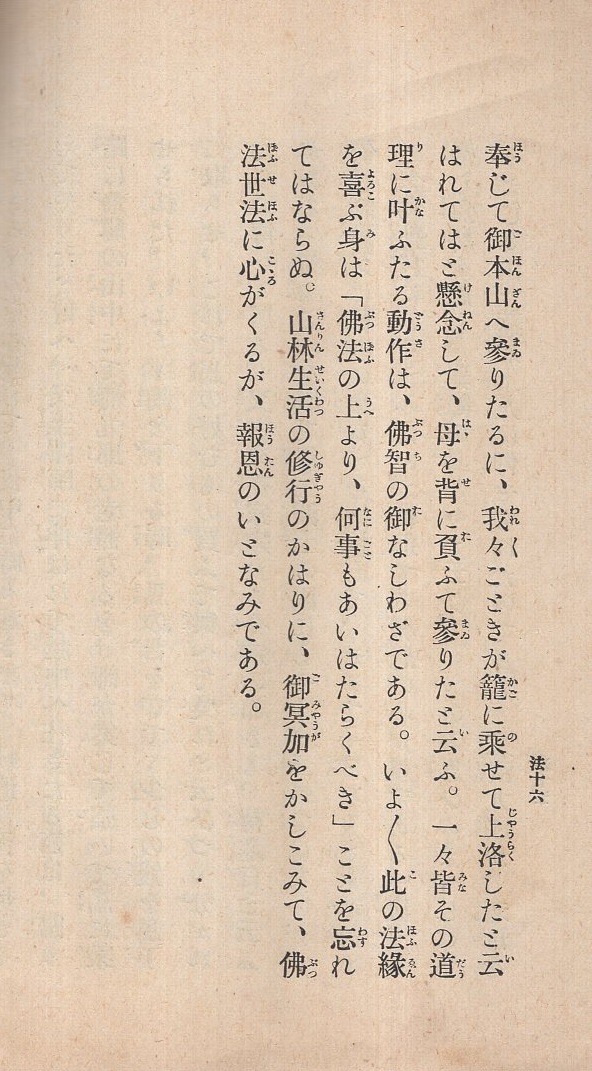 法十六
奉じて御本山へ參りたるに、我々ごときが籠に乘せて上洛したと云
はれてはと懸念して、母を背に負ふて參りたと云ふ。一々皆その道
理に叶ふたる動作は、佛智の御なしわざである。いよ〱此の法緣
を喜ぶ身は「佛法の上より、何事もあいはたらくべき」ことを忘れ
てはならぬ。山林生活の修行のかはりに、御冥加をかしこみて、佛
法世法に心がくるが、報恩のいとなみである。